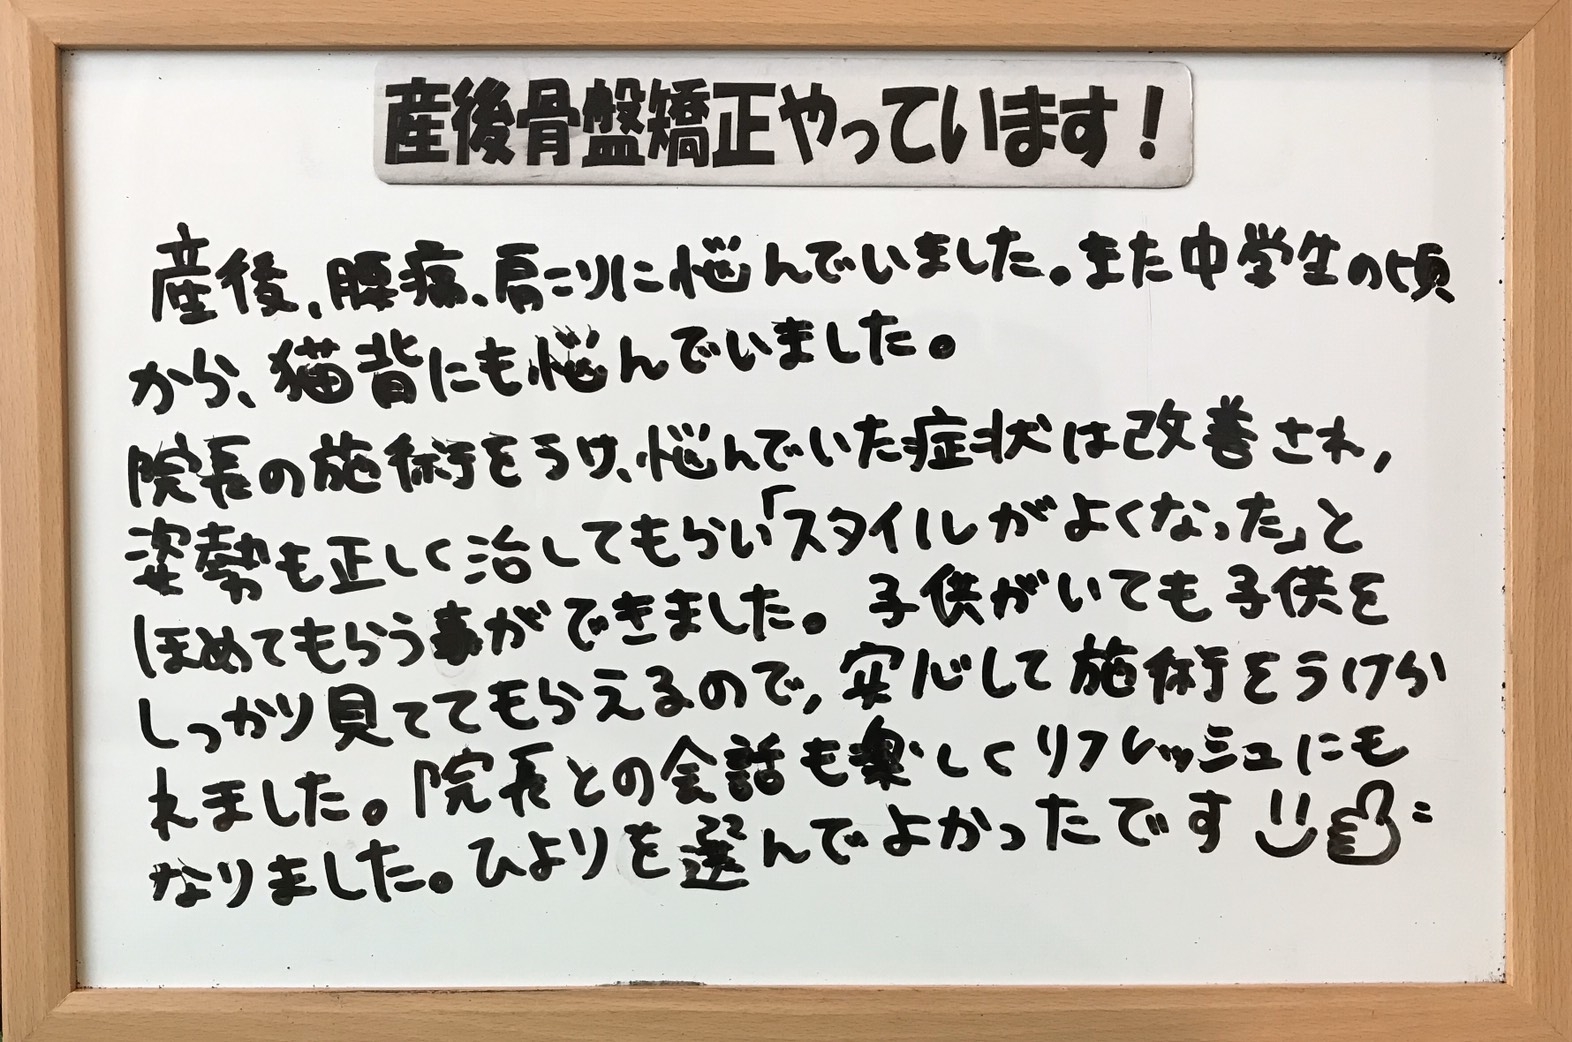 産後骨盤矯正やっています!
産後、腰痛、肩こりに悩んでいました。また中学生の頃
から、猫背にも悩んでいました。
院長の施術をうけ、悩んでいた症状は改善され,
姿勢も正しく治してもらい「スタイルがよくなった」と
ほめてもらう事ができました。子供がいても子供を
しっかり見ててもらえるので,安心して施術をうけら
れました。院長との会話も楽しくリフレッシュにも
なりました。ひよりを選んでよかったです